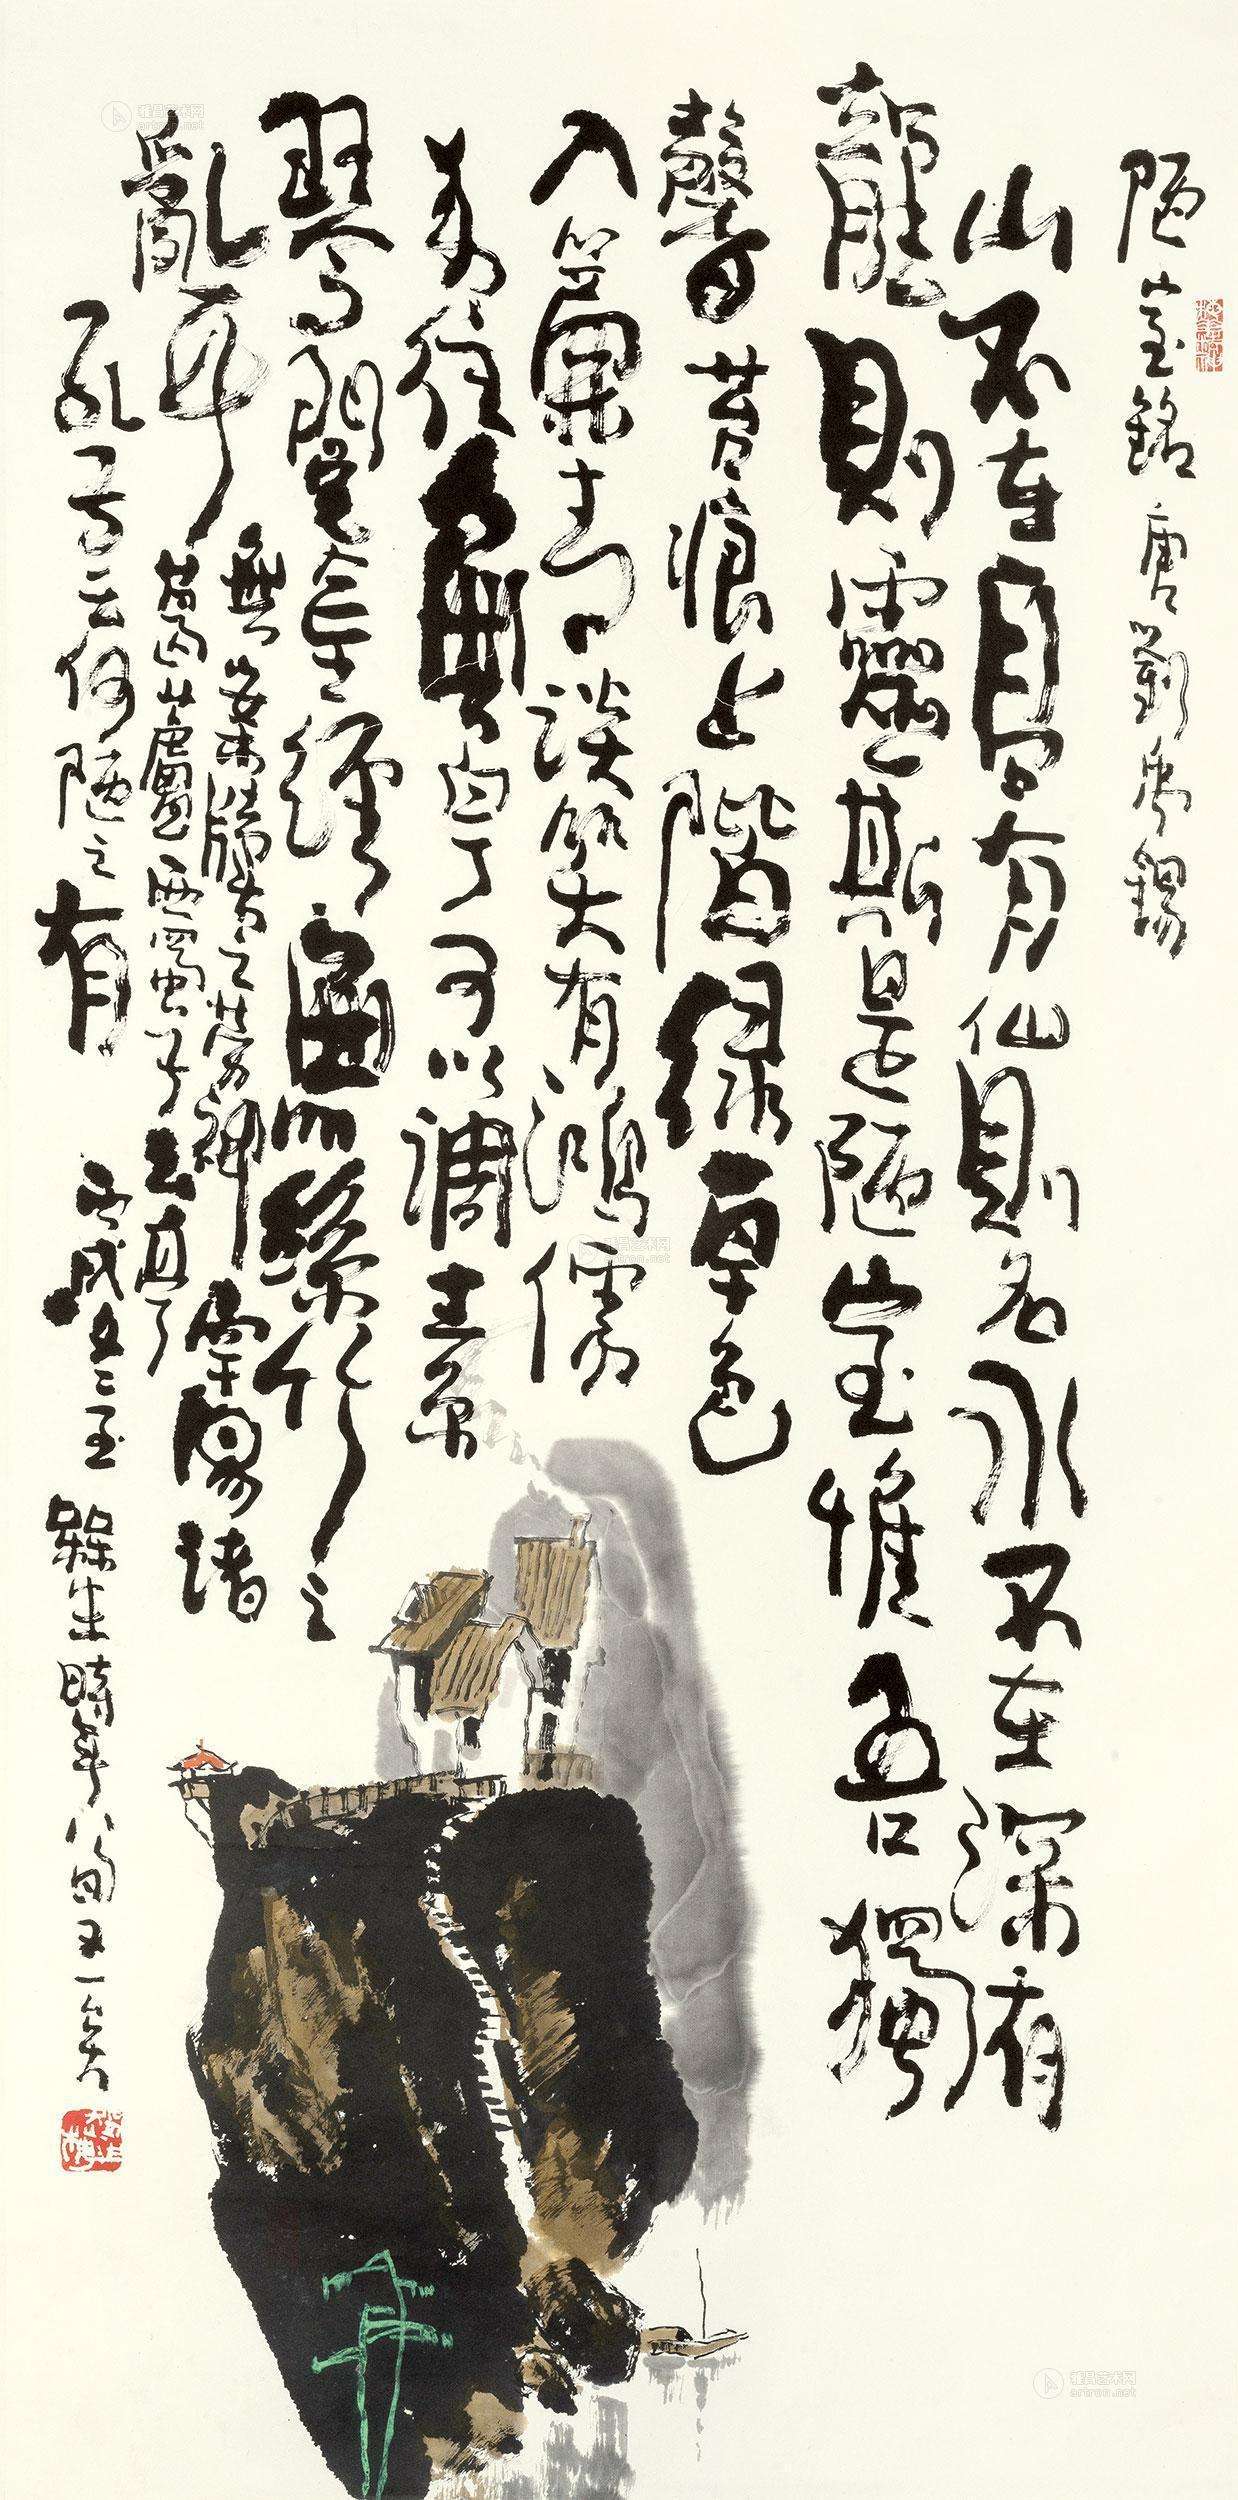 陋室銘 唐 劉禹錫
山不在高有仙則名水不在深有
龍則靈斯是陋室惟吾獨
馨苔痕上階綠草色
入簾青談笑有鴻儒
來往無白丁可以調素
琴閱金經無絲竹之
亂耳
無案牘之勞神南陽諸
葛廬西蜀子云亭
孔子云何陋之有 丙戌冬至 槑生時年八旬又一矣
雅昌艺术网
artron.net
雅昌艺术网
artron.net
雅昌艺术网
artron.net